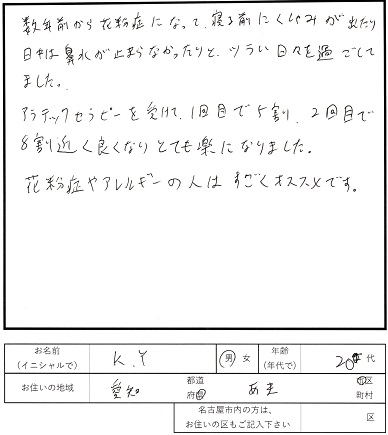 数年前から花粉症になって、寝る前にくしゃみが出たり
日中は鼻水が止まらなかったりと、ツラい日々を過ごして
ました。
アラテックセラピーを受けて、1回目で5割、2回目で
8割近く良くなりとても楽になりました。
花粉症やアレルギーの人はすごくオススメです。
お名前
(イニシャルで)
K.Y
男 女
年齢
(年代で)
20 代
お住いの地域
愛知
都道
府県
あま
市区
町村
名古屋市内の方は、
お住いの区もご記入下さい
区